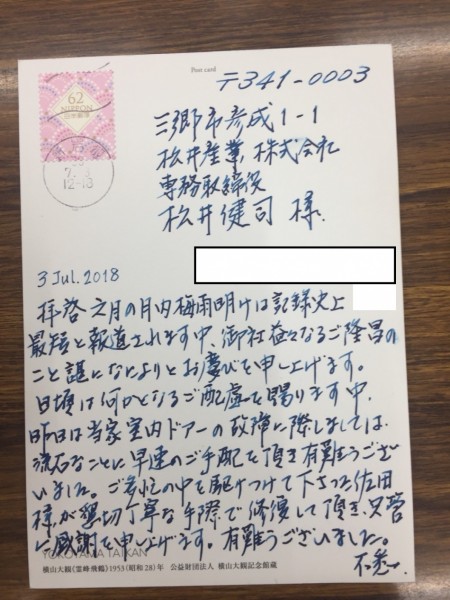 Post card
62
NIPPON
日本郵便
12-18
〒341-0003
三郷市彦成1-1
松井産業 株式会社
専務取締役
松井健司 様
3 Jul. 2018
拝啓 六月の月内梅雨明けは記録史上
最短と報道されます中、御社益々なるご隆昌の
こと誠になによりとお慶びを申し上げます。
日頃は何かとなるご配慮を賜ります中、
昨日は当家室内ドアーの故障に際しましては、
流石なことに早速のご手配を頂き有難うござい
いました。ご多忙の中を駆けつけて下さった佐田
様が懇切丁寧な手際で修復して頂き、只管
に感謝を申し上げます。有難うございました。
YOKOYAMA TAIKAN
横山大観《霊峰飛鶴》1953(昭和28)年 公益財団法人 横山大観記念館蔵